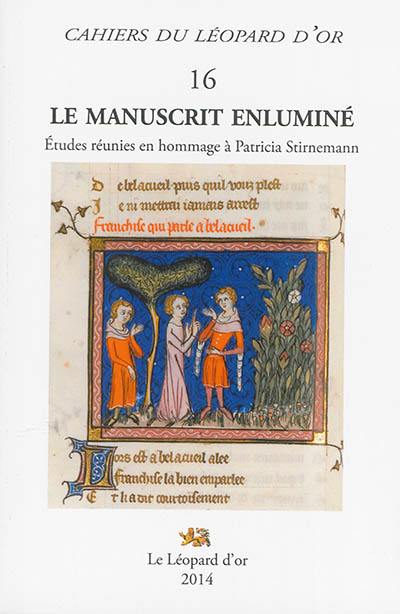 CAHIERS DU LÉOPARD D'OR
16
LE MANUSCRIT ENLUMINÉ
Études réunies en hommage à Patricia Stirnemann
De belacueil puis quil vous plest
Je ni mettrai iamais arrest
Franchise qui parle a belacueil.
Lors est a belacueil alee
Franchise la bien emparlee
Et li a dit courtoisement
Le Léopard d'or
2014